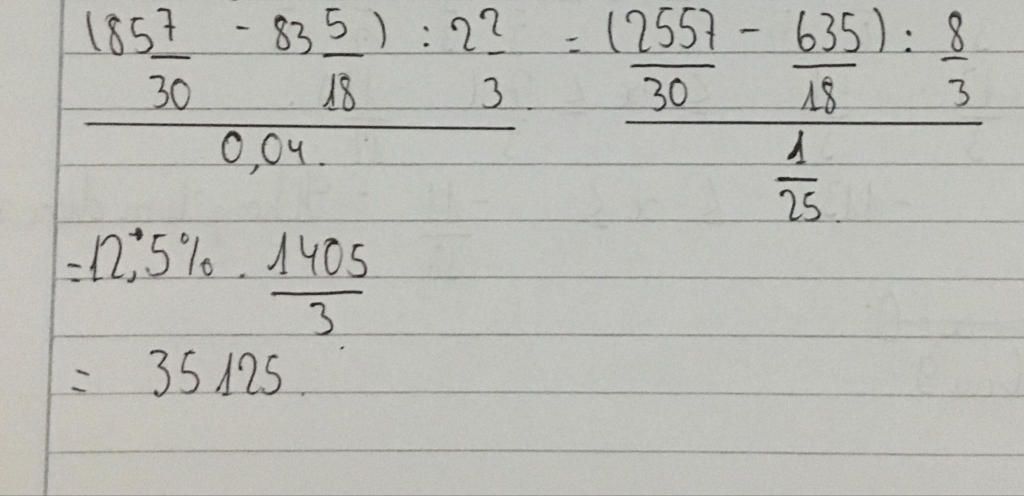 (85 7/30 - 83 5/18) : 2 2/3 = (2557/30 - 635/18) : 8/3
0,04. 1/25.
= 12,5% . 1405/3
= 35125.